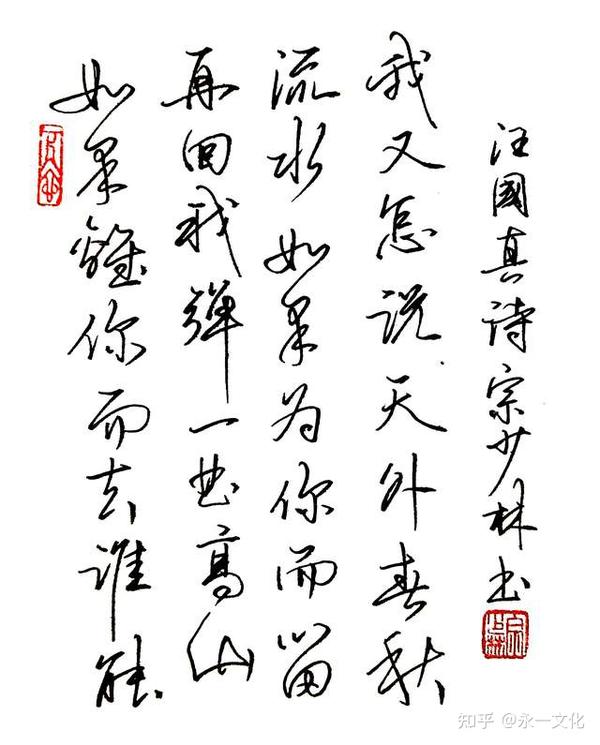 如果離你而去谁能
再回我弹一曲高山
流水如果为你而留
我又怎说天外春秋
汪國真诗宗少林书
知乎 @永一文化